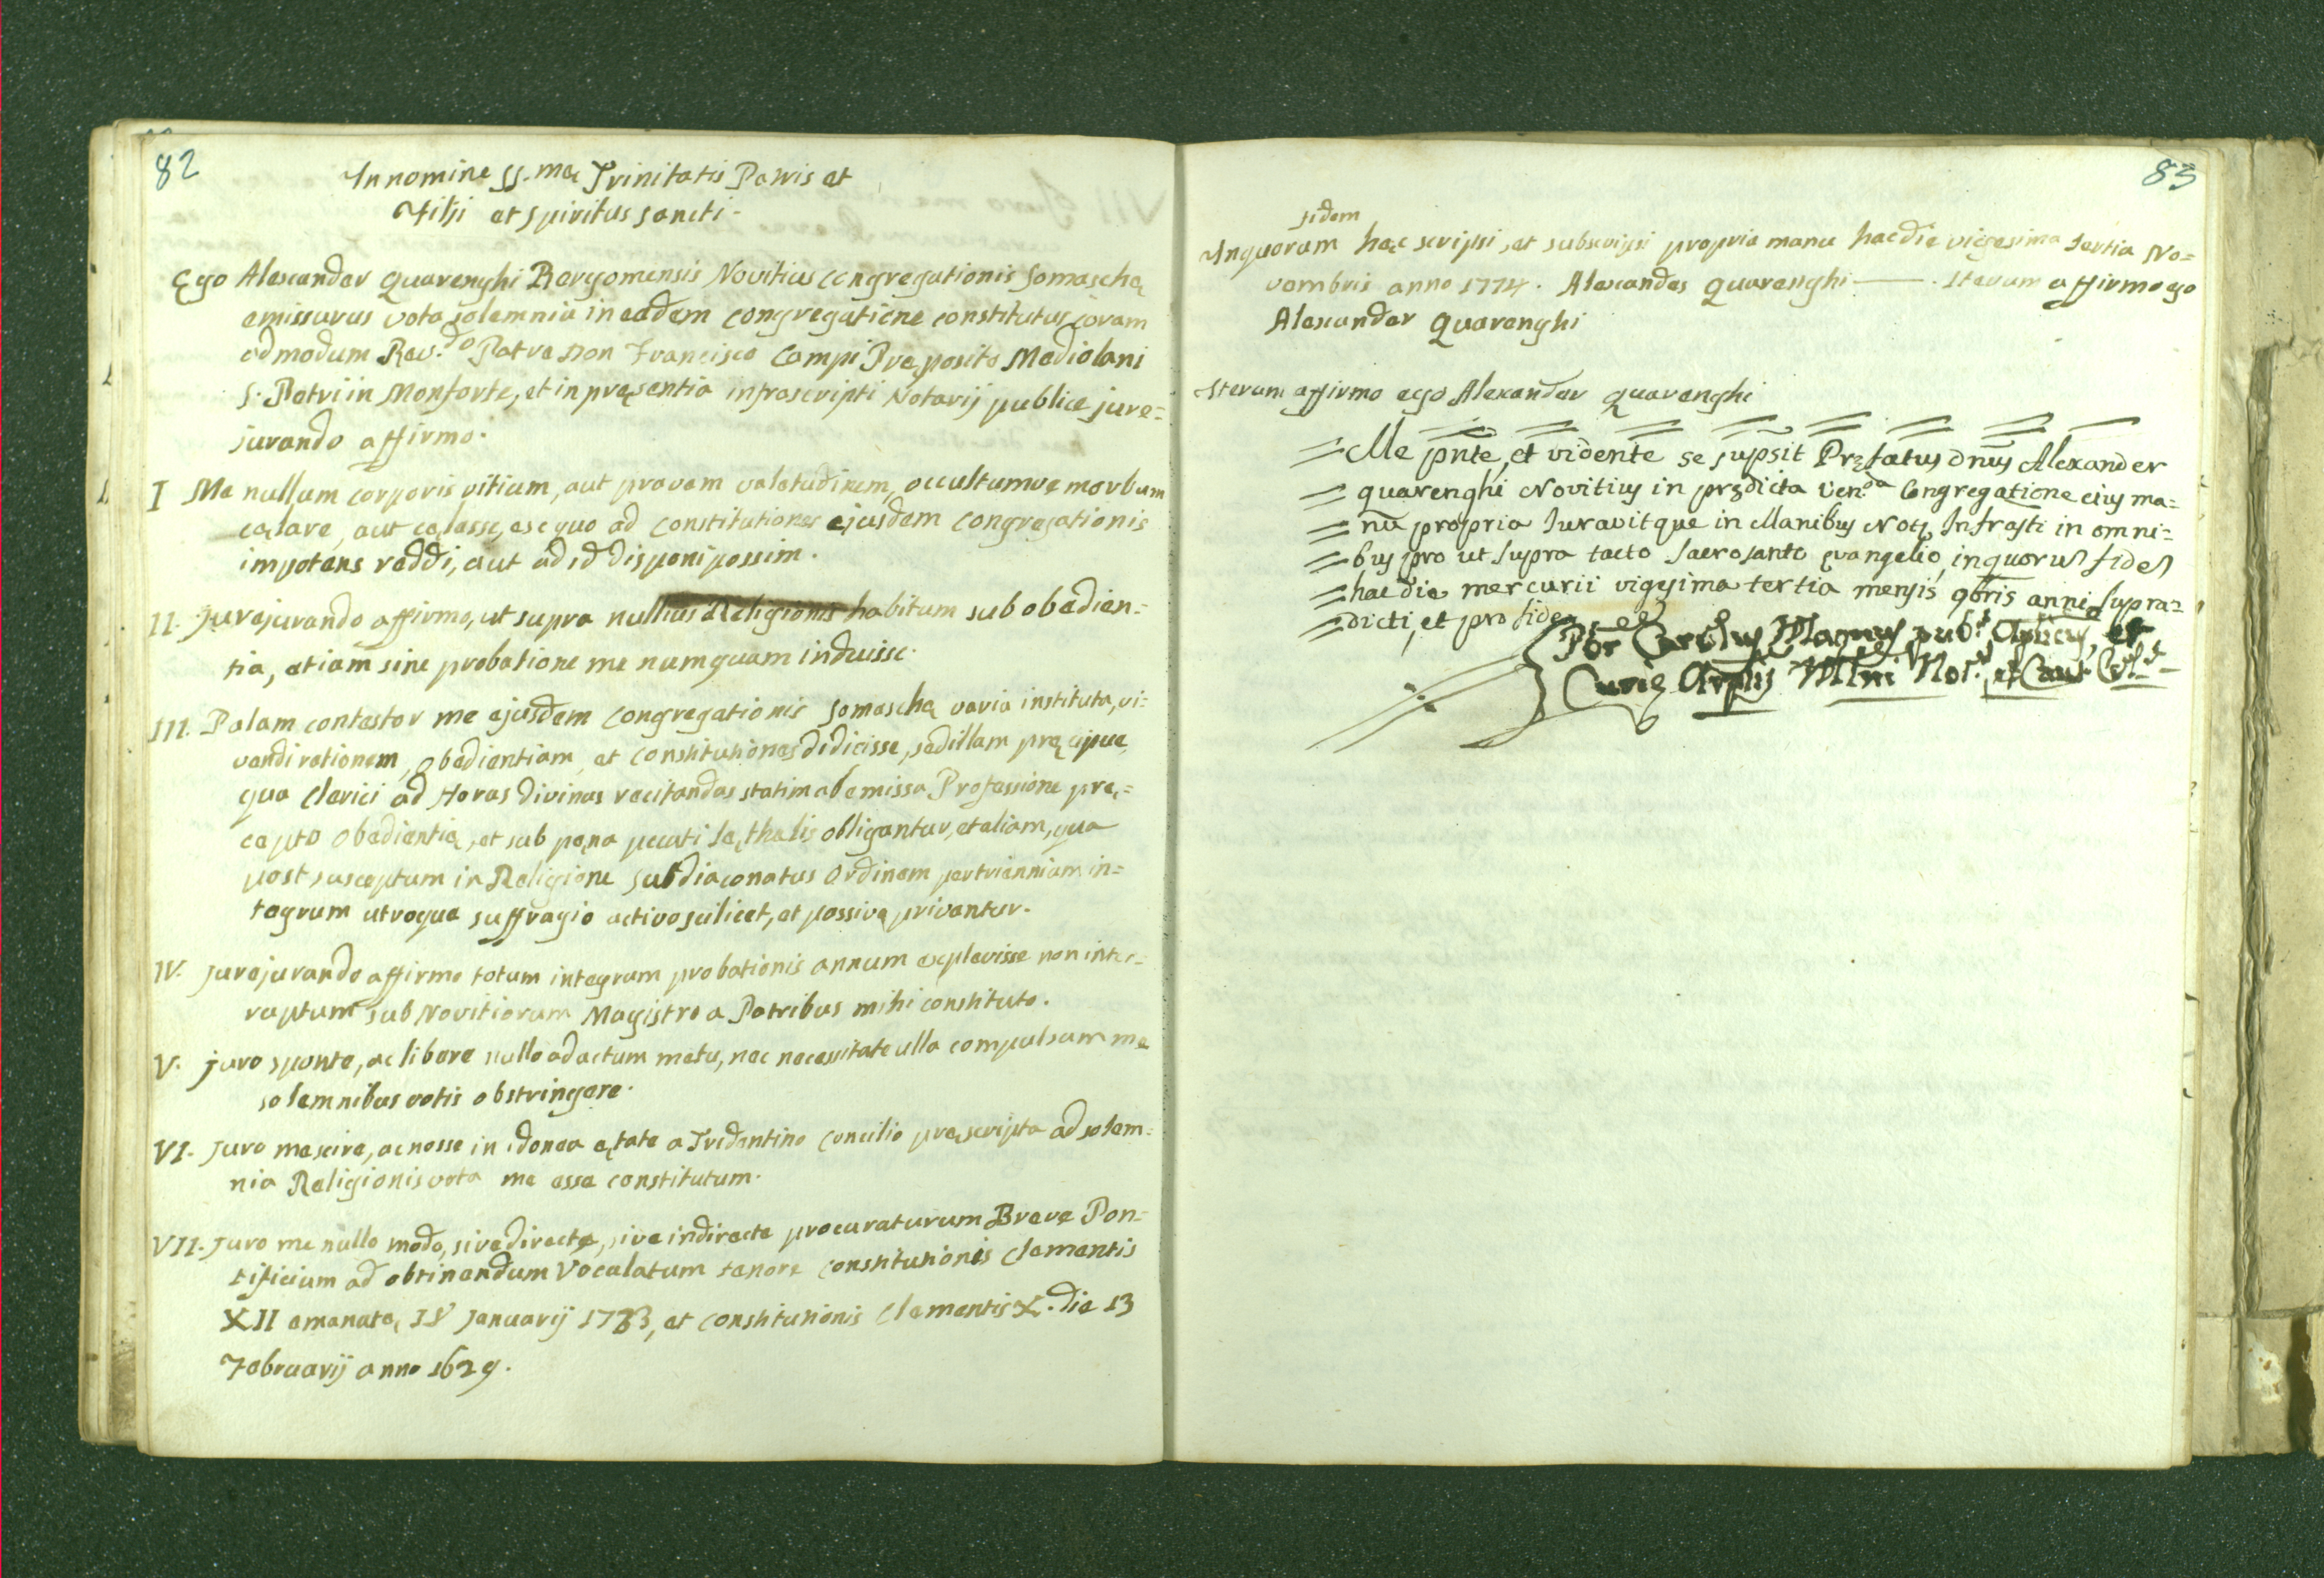 82
In nomine SS.mæ Trinitatis Patris et
Filij et Spiritus Sancti.
Ego Alexander Quarenghi Bergomensis Novitius Congregationis Somaschę
emissurus vota solemnia in eadem Congregatione constitutus coram
admodum Rev.do Patre Don Francisco Campi Pręposito Mediolani
S. Petri in Monforte, et in pręsentia infrascripti Notarij publice jure=
jurando affirmo.
I Me nullum corporis vitium, aut pravam valetudinem, occultumve morbum
cęlare, aut cęlasse, ex quo ad Constitutiones ejusdem Congregationis
impotens reddi, aut ad id disponi possim.
II. Jurejurando affirmo, ut supra nullius Religionis habitum sub obedien=
tia, etiam sine probatione me numquam induisse.
III. Palam contestor me ejusdem Congregationis Somaschę varia instituta, vi=
vendi rationem, obedientiam, et Constitutiones didicisse, sed illam pręcipue,
qua Clerici ad Horas Divinas recitandas statim ab emissa Professione prę=
cepto obedientię, et sub pęna peccati lęthalis obligantur, et aliam, qua
post susceptum in Religione Subdiaconatus Ordinem per triennium in=
tegrum utroque suffragio activo scilicet, et passivo privantur.
IV. Jurejurando affirmo totum integrum probationis annum explevisse non inter=
ruptum sub Novitiorum Magistro a Patribus mihi constituto.
V. Juro sponte, ac libere nullo adactum metu, nec necessitate ulla compulsum me
solemnibus votis obstringere.
VI. Juro me scire, ac nosse in idonea ętate a Tridentino Concilio pręscripta ad solem=
nia Religionis vota me esse constitutum.
VII. Juro me nullo modo, sive directe, sive indirecte procuraturum Breve Pon=
tificium ad obtinendum Vocalatum tenore Constitutionis Clementis
XII emanatę IV Januarij 1733, et Constitutionis Clementis X. die 13
Februarij anno 1629.
83
fidem
In quorum hęc scripsi, et subscripsi propria manu hac die vigesima tertia No=
vembris anno 1774. Alexander Quarenghi —— . Iterum affirmo ego
Alexander Quarenghi
Iterum affirmo ego Alexander Quarenghi
Me pnte, et vidente se supsit Pręfatus Dnus Alexander
quarenghi Novitius in prędicta Ven.da Congregatione eius ma=
nu propria Iuravitque in Manibus Notę Infrasti in omni=
bus pro ut supra tacto Sacrosanto evangelio, in quorum fidem
hac die mercurii vigesima tertia mensis 9bris anni supra=
dicti, et pro fide
Pbr Carolus Magnus pub.s Aplicus, et
Curię Arplis Mlni Not.s et Canc.